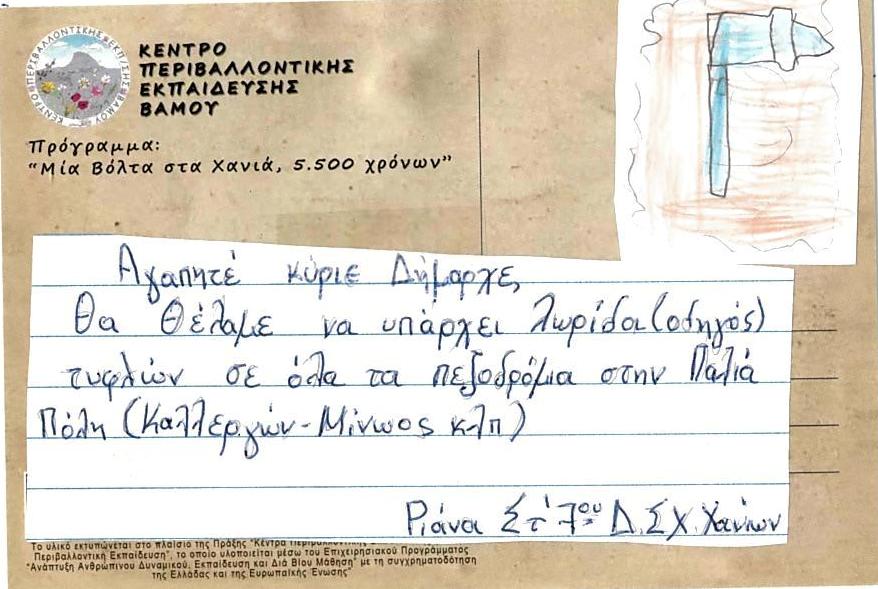 ΚΕΝΤΡΟ
ΠΕΡΙΒΑΛΛΟΝΤΙΚΗΣ
ΕΚΠΑΙΔΕΥΣΗΣ
ΒΑΜΟΥ
ΚΕΝΤΡΟ ΠΕΡΙΒΑΛΛΟΝΤΙΚΗΣ ΕΚΠ/ΣΗΣ ΒΑΜΟΥ
Πρόγραμμα:
"Μία Βόλτα στα Χανιά, 5.500 χρόνων"
Αγαπητέ κύριε Δήμαρχε,
Θα Θέλαμε να υπάρχει λωρίδα (οδηγός)
τυφλών σε όλα τα πεζοδρόμια στην Παλιά
Πόλη (Καλλεργών-Μίνωος κλπ)
Ριάνα Στ' 7ου Δ.ΣΧ. Χανίων
Το υλικό εκτυπώνεται στο πλαίσιο της Πράξης "Κέντρα Περιβαλλοντικής
Περιβαλλοντική Εκπαίδευση", το οποίο υλοποιείται μέσω του Επιχειρησιακού Προγράμματος
"Ανάπτυξη Ανθρώπινου Δυναμικού, Εκπαίδευση και Διά Βίου Μάθηση" με τη συγχρηματοδότηση
της Ελλάδας και της Ευρωπαϊκής Ένωσης"